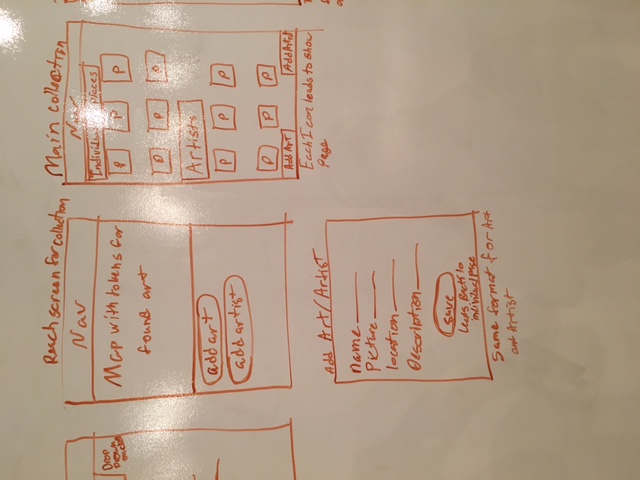 Drop
Down
Reach screen for collection
Nav
Map with tokens for
found art
add art
add artist
Main collection
Nav
Individual places
P P P
P P P
Artists
P P P
P P P
Add Art Add Artist
Each Icon leads to show
page
Add Art/Artist
name
Picture
location
Description
save
Leads Back to
individual page
Same format for Art
and Artist